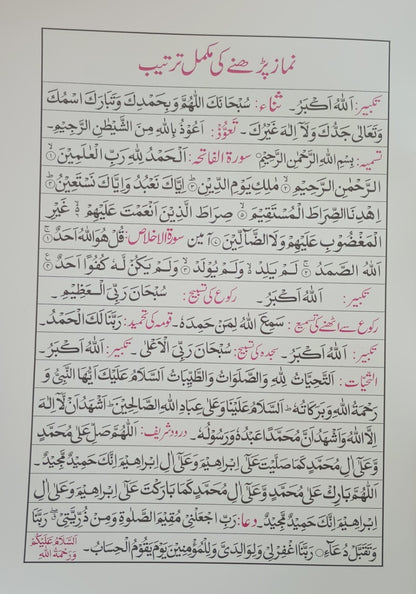 نماز پڑھنے کی مکمل ترتیب
تکبیر: اَللّٰهُ اَکْبَرُ۔ ثناء: سُبْحَانَكَ اللّٰهُمَّ وَبِحَمْدِكَ وَتَبَارَكَ اسْمُكَ
وَتَعَالٰى جَدُّكَ وَلَآ اِلٰهَ غَيْرُكَ۔ تعوُّذ: اَعُوْذُ بِاللّٰهِ مِنَ الشَّيْطٰنِ الرَّجِيْمِ۔
تسمیہ: بِسْمِ اللّٰهِ الرَّحْمٰنِ الرَّحِيْمِ سورۃ الفاتحہ: اَلْحَمْدُ لِلّٰهِ رَبِّ الْعٰلَمِيْنَ ۱
الرَّحْمٰنِ الرَّحِيْمِ ۲ مٰلِكِ يَوْمِ الدِّيْنِ ۳ اِيَّاكَ نَعْبُدُ وَاِيَّاكَ نَسْتَعِيْنُ ۴
اِهْدِنَا الصِّرَاطَ الْمُسْتَقِيْمَ ۵ صِرَاطَ الَّذِيْنَ اَنْعَمْتَ عَلَيْهِمْ ۶ غَيْرِ
الْمَغْضُوْبِ عَلَيْهِمْ وَلَا الضَّآلِّيْنَ ۷ آمین سورۃ الاخلاص: قُلْ هُوَ اللّٰهُ اَحَدٌ ۱
اَللّٰهُ الصَّمَدُ ۲ لَمْ يَلِدْ وَلَمْ يُوْلَدْ ۳ وَلَمْ يَكُنْ لَّهٗ كُفُوًا اَحَدٌ ۴
تکبیر: اَللّٰهُ اَکْبَرُ۔ رکوع کی تسبیح: سُبْحَانَ رَبِّيَ الْعَظِيْمِ۔
رکوع سے اٹھنے کی تسمیع: سَمِعَ اللّٰهُ لِمَنْ حَمِدَهٗ۔ قومہ کی تحمید: رَبَّنَا لَكَ الْحَمْدُ۔
تکبیر: اَللّٰهُ اَکْبَرُ۔ سجدہ کی تسبیح: سُبْحَانَ رَبِّيَ الْاَعْلٰى۔ تکبیر: اَللّٰهُ اَکْبَرُ۔
التّحیّات: اَلتَّحِيَّاتُ لِلّٰهِ وَالصَّلَوَاتُ وَالطَّيِّبَاتُ اَلسَّلَامُ عَلَيْكَ اَيُّهَا النَّبِيُّ وَ
رَحْمَةُ اللّٰهِ وَبَرَكَاتُهٗ اَلسَّلَامُ عَلَيْنَا وَعَلٰى عِبَادِ اللّٰهِ الصَّالِحِيْنَ اَشْهَدُ اَنْ لَّآ اِلٰهَ
اِلَّا اللّٰهُ وَاَشْهَدُ اَنَّ مُحَمَّدًا عَبْدُهٗ وَرَسُوْلُهٗ۔ درود شریف: اَللّٰهُمَّ صَلِّ عَلٰى مُحَمَّدٍ
وَّعَلٰٓى اٰلِ مُحَمَّدٍ كَمَا صَلَّيْتَ عَلٰٓى اِبْرَاهِيْمَ وَعَلٰٓى اٰلِ اِبْرَاهِيْمَ اِنَّكَ حَمِيْدٌ مَّجِيْدٌ۔
اَللّٰهُمَّ بَارِكْ عَلٰى مُحَمَّدٍ وَّعَلٰٓى اٰلِ مُحَمَّدٍ كَمَا بَارَكْتَ عَلٰٓى اِبْرَاهِيْمَ وَعَلٰٓى اٰلِ
اِبْرَاهِيْمَ اِنَّكَ حَمِيْدٌ مَّجِيْدٌ۔ دعا: رَبِّ اجْعَلْنِيْ مُقِيْمَ الصَّلٰوةِ وَمِنْ ذُرِّيَّتِيْ رَبَّنَا
وَتَقَبَّلْ دُعَآءِ ۝ رَبَّنَا اغْفِرْ لِيْ وَلِوَالِدَيَّ وَلِلْمُؤْمِنِيْنَ يَوْمَ يَقُوْمُ الْحِسَابُ۔ اَلسَّلَامُ عَلَيْكُمْ
وَرَحْمَةُ اللّٰهِ